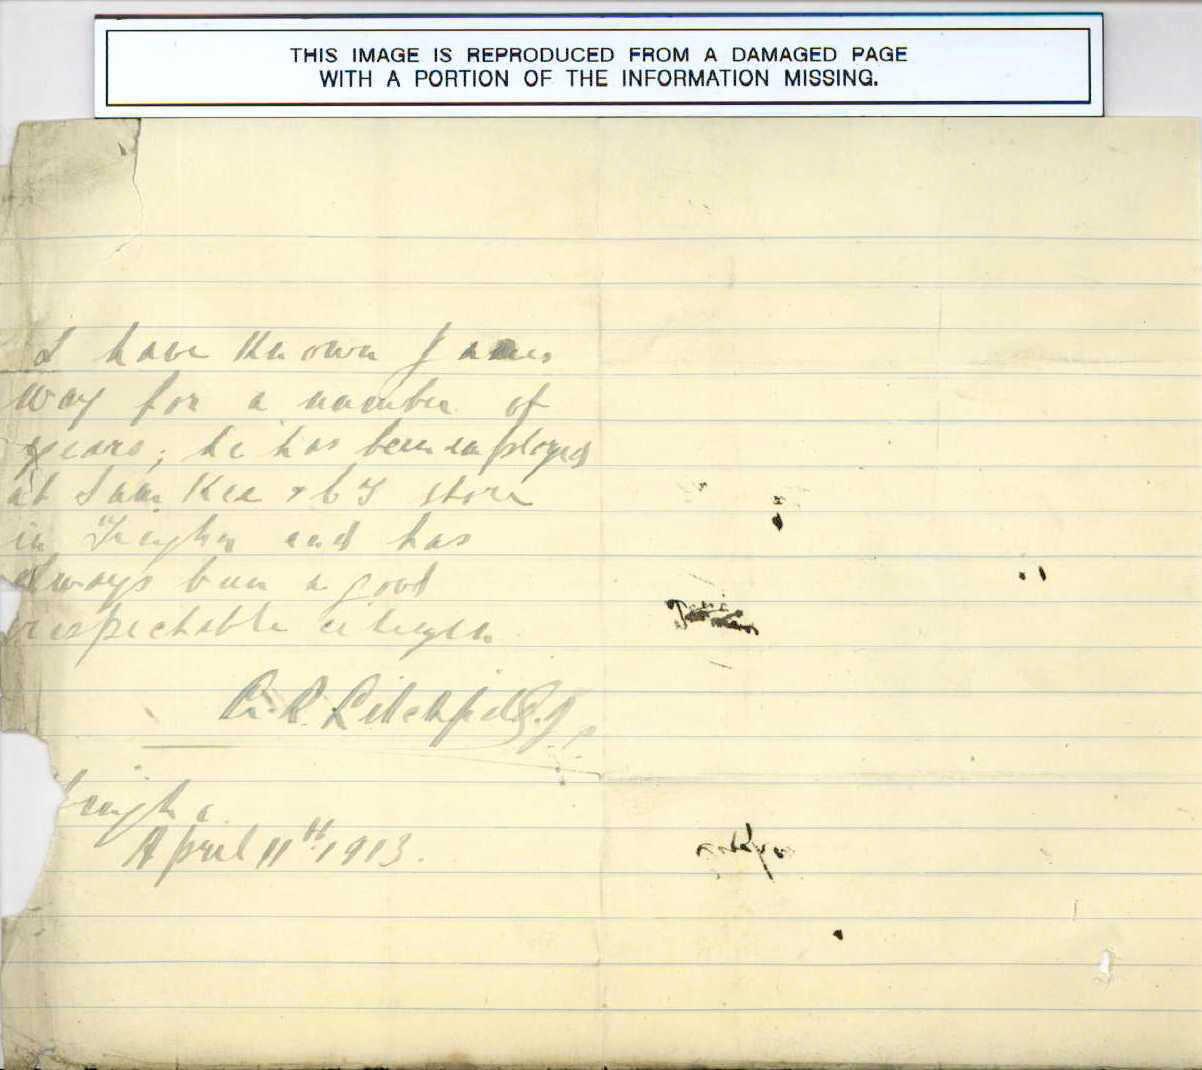 THIS IMAGE IS REPRODUCED FROM A DAMAGED PAGE
WITH A PORTION OF THE INFORMATION MISSING.
I have Known James
Way for a number of
years; he has been employed
at Sam Kee & Co's store
in Tingha and has
always been a good
respectable citizen.
A. R. Litchfield J.P.
Tingha
April 11th 1913.